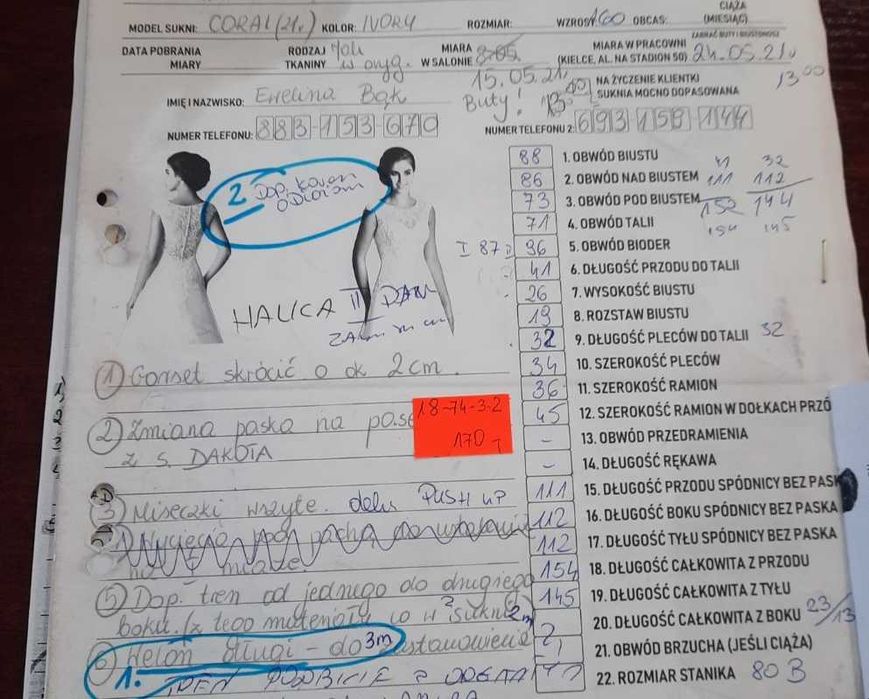 CIĄŻA
MODEL SUKNI: CORAL (21r) KOLOR: IVORY ROZMIAR: WZROST: 160 OBCAS: (MIESIĄC)
ZABRAĆ BUTY I BIUSTONOSZ
DATA POBRANIA MIARY RODZAJ TKANINY w oryg. MIARA W SALONIE 8.05. MIARA W PRACOWNI (KIELCE, AL. NA STADION 50) 24.05.21r
15.05.21r 13 00
NA ŻYCZENIE KLIENTKI
SUKNIA MOCNO DOPASOWANA
IMIĘ I NAZWISKO: Ewelina Bąk Buty!
NUMER TELEFONU: 883-153-670 NUMER TELEFONU 2: 693 158 144
2 Dop.
HALICA II
88 1. OBWÓD BIUSTU 41 32
86 2. OBWÓD NAD BIUSTEM 111 112
73 3. OBWÓD POD BIUSTEM 152 144
71 4. OBWÓD TALII 154 145
I 87 96 5. OBWÓD BIODER
41 6. DŁUGOŚĆ PRZODU DO TALII
26 7. WYSOKOŚĆ BIUSTU
19 8. ROZSTAW BIUSTU
32 9. DŁUGOŚĆ PLECÓW DO TALII 32
34 10. SZEROKOŚĆ PLECÓW
36 11. SZEROKOŚĆ RAMION
45 12. SZEROKOŚĆ RAMION W DOŁKACH PRZÓ
- 13. OBWÓD PRZEDRAMIENIA
- 14. DŁUGOŚĆ RĘKAWA
111 15. DŁUGOŚĆ PRZODU SPÓDNICY BEZ PASK
112 16. DŁUGOŚĆ BOKU SPÓDNICY BEZ PASKA
112 17. DŁUGOŚĆ TYŁU SPÓDNICY BEZ PASKA
154 18. DŁUGOŚĆ CAŁKOWITA Z PRZODU
145 19. DŁUGOŚĆ CAŁKOWITA Z TYŁU
20. DŁUGOŚĆ CAŁKOWITA Z BOKU 23/13
21. OBWÓD BRZUCHA (JEŚLI CIĄŻA)
22. ROZMIAR STANIKA 80 B
1 Gorset skrócić o ok 2cm.
2 Zmiana paska na pase
z s. DAKOTA
18-74-3-2
170
3 Miseczki wszyte. PUSH UP
pod pachą
5 Dop. tren od jednego do drugiego
boku. (z tego materiału co w sukni)
6 Welon długi - do 3m
1. TREN PODBICIE Z